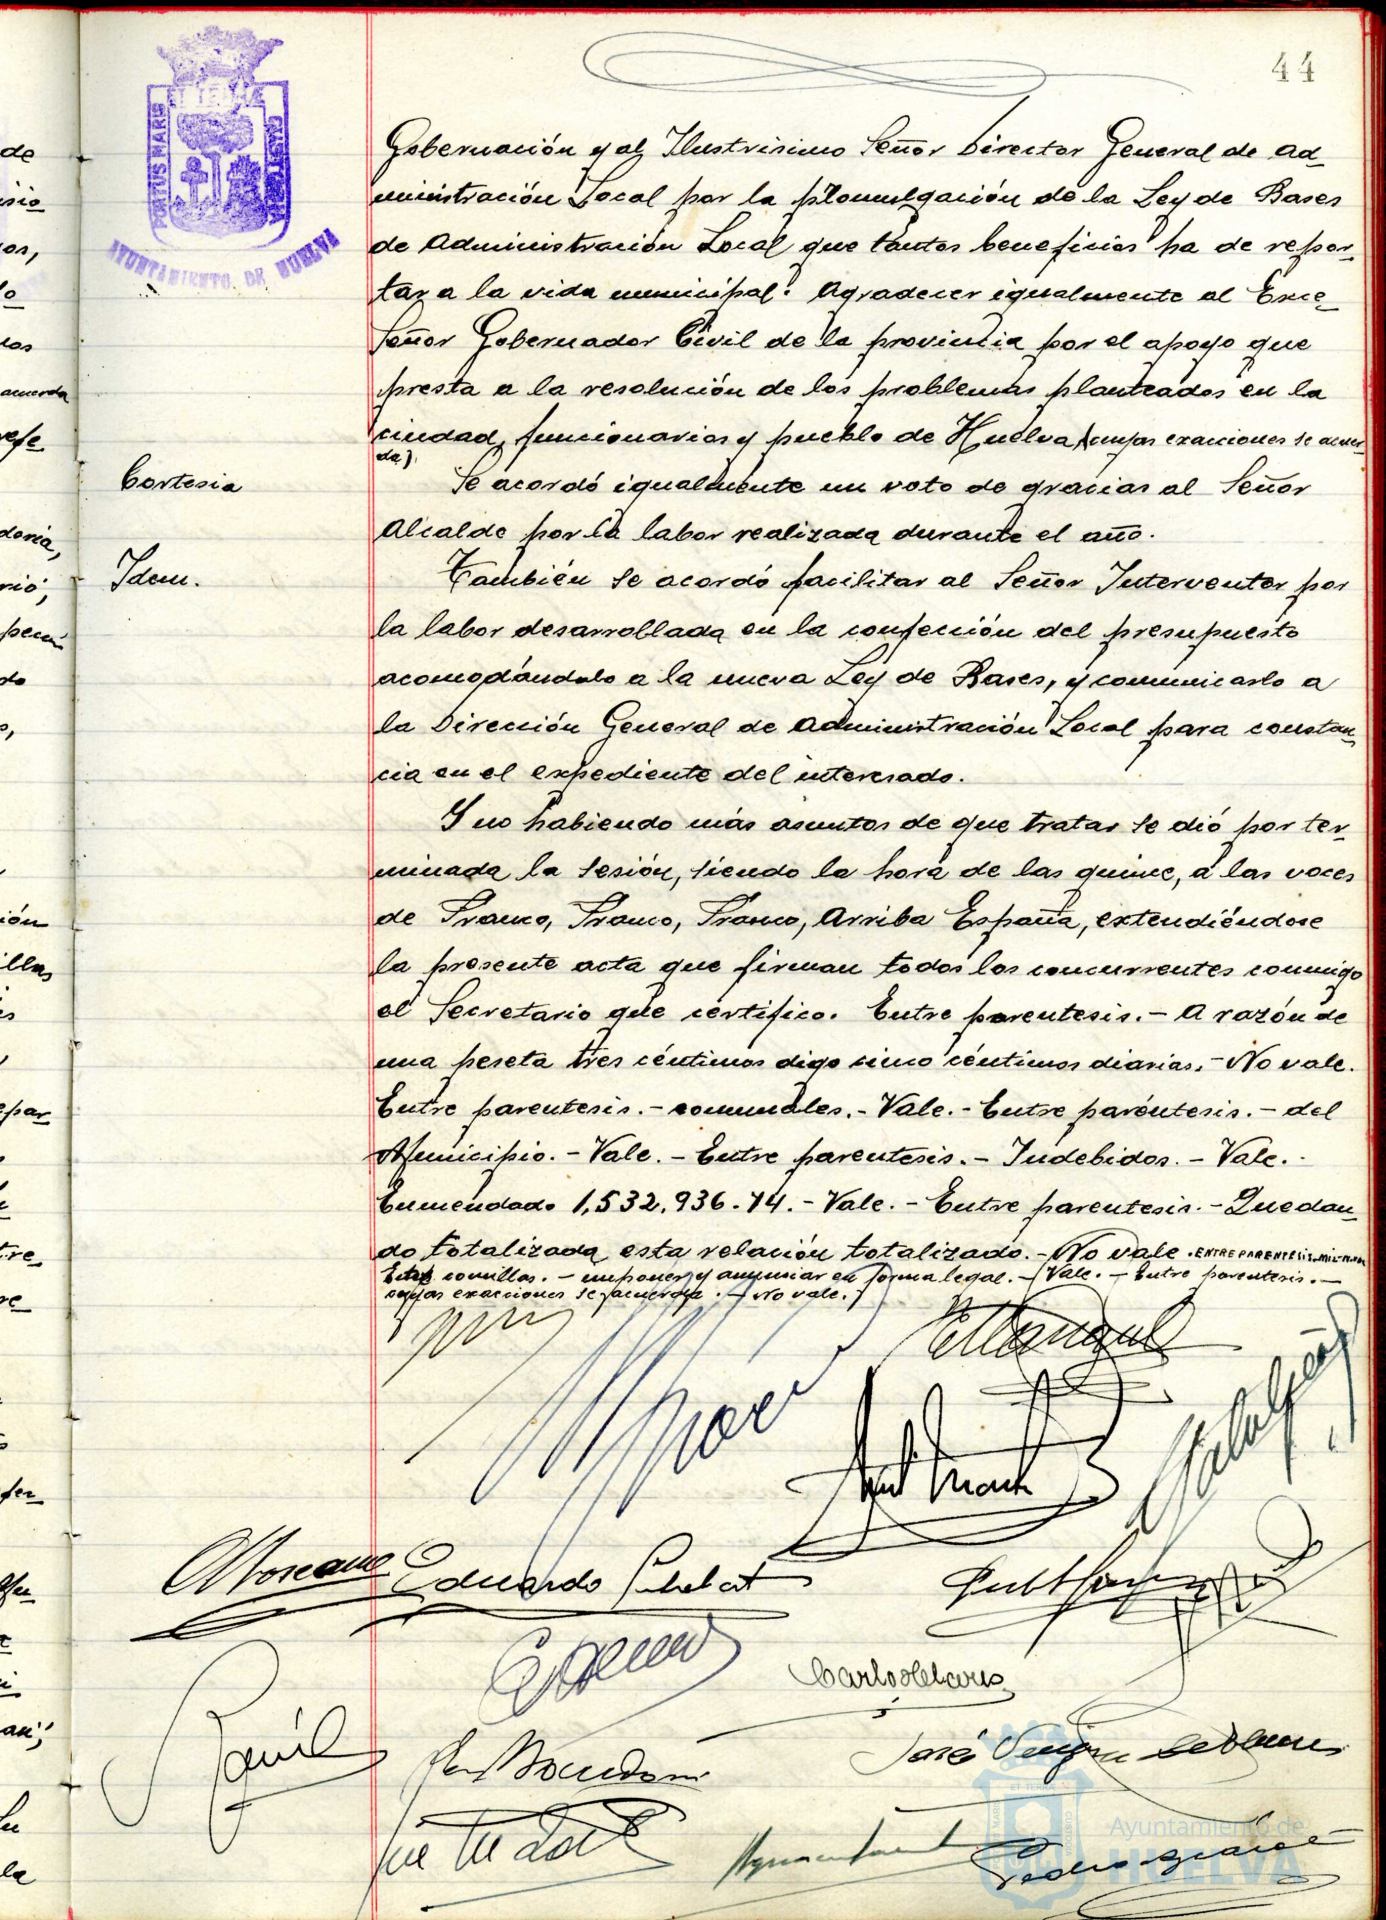 44
PORTUS MARIS
CUSTODIA
AYUNTAMIENTO DE HUELVA
Gobernación y al Ilustrisimo Señor Director General de Ad_
ministración Local por la promulgación de la Ley de Bases
de Administración Local que tantos beneficios ha de repor_
tar a la vida municipal. Agradecer igualmente al Exce_
Señor Gobernador Civil de la provincia por el apoyo que
presta a la resolución de los problemas planteados en la
ciudad, funcionarios y pueblo de Huelva (cuyas exacciones se acuer_
da).
Cortesia
Se acordó igualmente un voto de gracias al Señor
Alcalde por la labor realizada durante el año.
Idem.
También se acordó facilitar al Señor Interventor por
la labor desarrollada en la confección del presupuesto
acomodándolo a la nueva Ley de Bases, y comunicarlo a
la Dirección General de Administración Local para constan_
cia en el expediente del interesado.
Y no habiendo más asuntos de que tratar se dió por ter_
minada la sesión, siendo la hora de las quince, a las voces
de Franco, Franco, Franco, Arriba España, extendiéndose
la presente acta que firman todos los concurrentes conmigo
el Secretario que certifico. Entre parentesis.- A razón de
una peseta tres céntimos digo cinco céntimos diarias.- No vale.
Entre parentesis.- comunales.- Vale.- Entre paréntesis.- del
Municipio.- Vale.- Entre parentesis.- Indebidos.- Vale.-
Enmendado 1,532,936.74.- Vale.- Entre parentesis.- Quedan_
do totalizada esta relación totalizado.- No vale. ENTRE PARENTESIS
Entre comillas.- imponer y anunciar en forma legal.- Vale.- Entre parentesis.-
cuyas exacciones se acuerda.- No vale.
Eduardo
José
Pedro
Ayuntamiento de
HUELVA